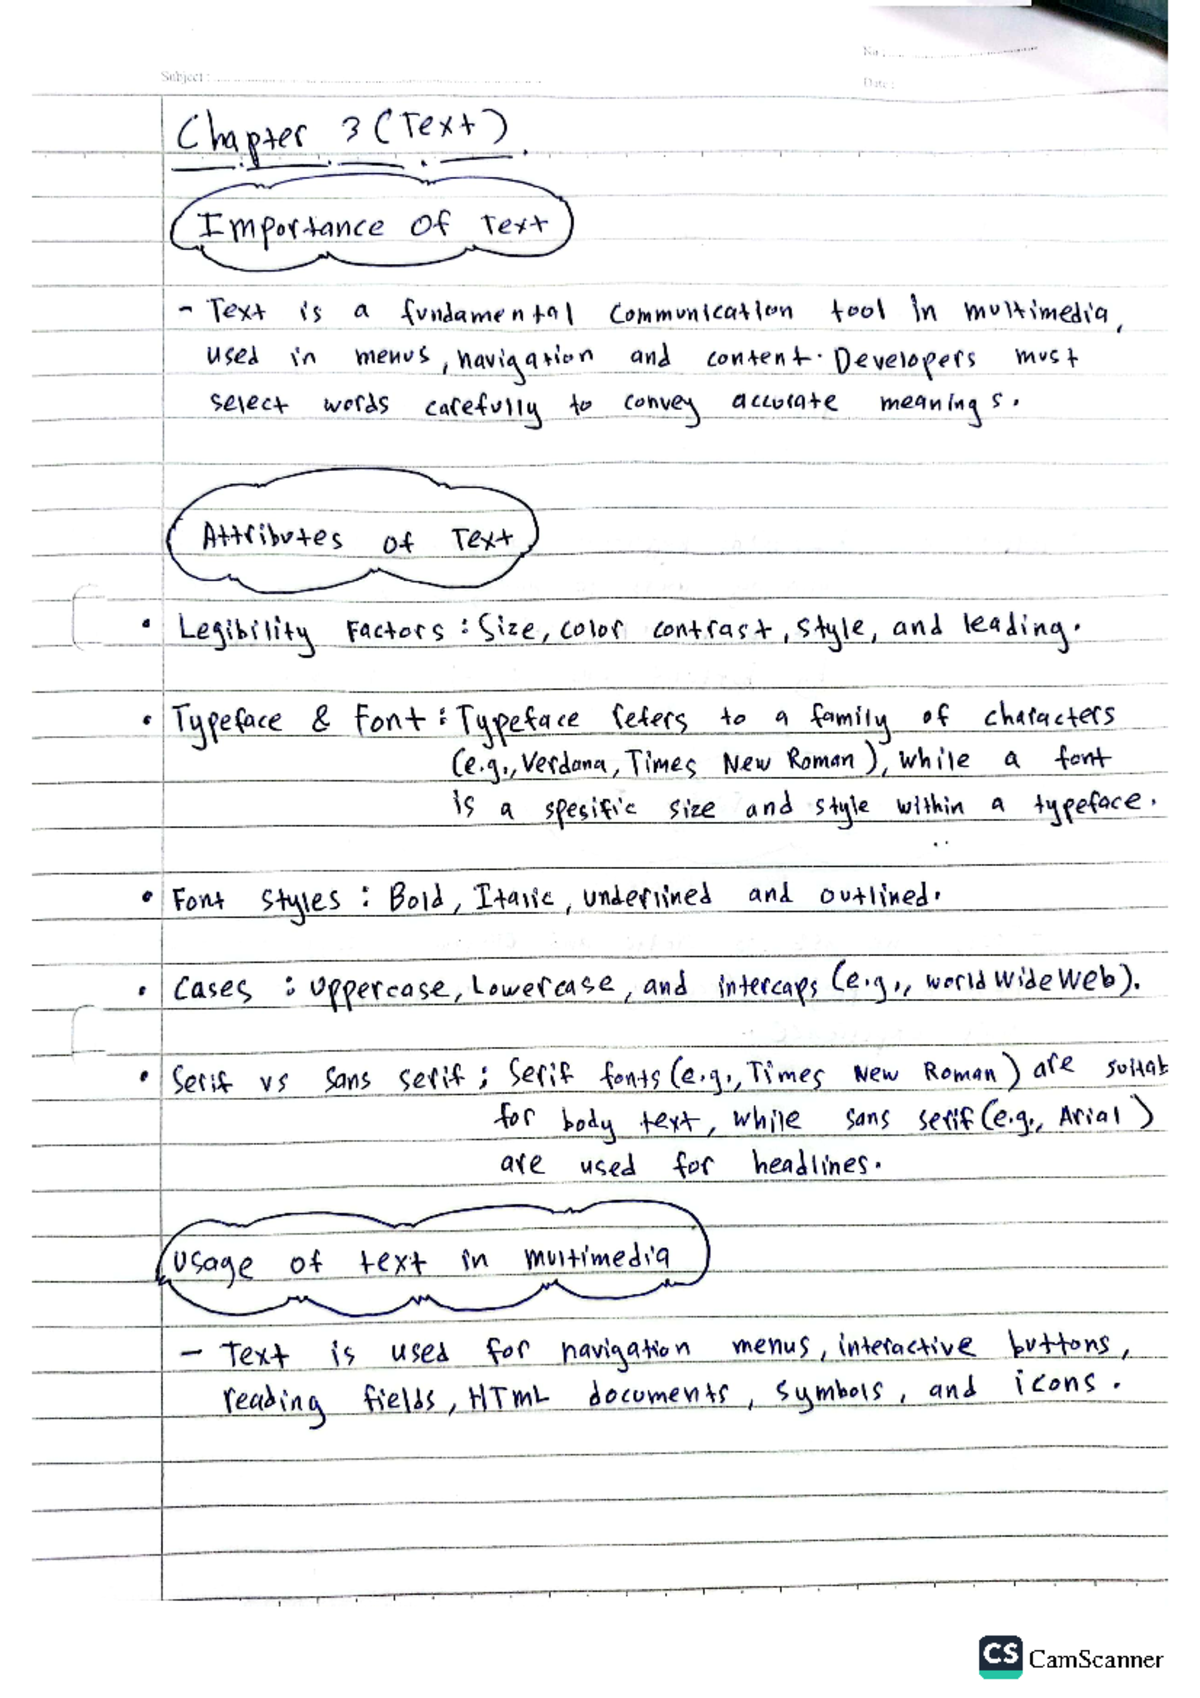 No :
Subject :
Date :
Chapter 3 (Text)
Importance Of Text
- Text is a fundamental communication tool in multimedia,
used in menus, navigation and content. Developers must
select words carefully to convey accurate meanings.
Attributes of Text
• Legibility Factors : Size, color contrast, style, and leading.
• Typeface & Font : Typeface refers to a family of characters
(e.g., Verdana, Times New Roman), while a font
is a spesific size and style within a typeface.
• Font Styles : Bold, Italic, underlined and outlined.
• Cases : Uppercase, Lowercase, and intercaps (e.g., world Wide Web).
• Serif vs Sans serif ; Serif fonts (e.g., Times New Roman) are suitab
for body text, while sans serif (e.g., Arial)
are used for headlines.
Usage of text in multimedia
- Text is used for navigation menus, interactive buttons,
reading fields, HTML documents, symbols, and icons.
CS CamScanner